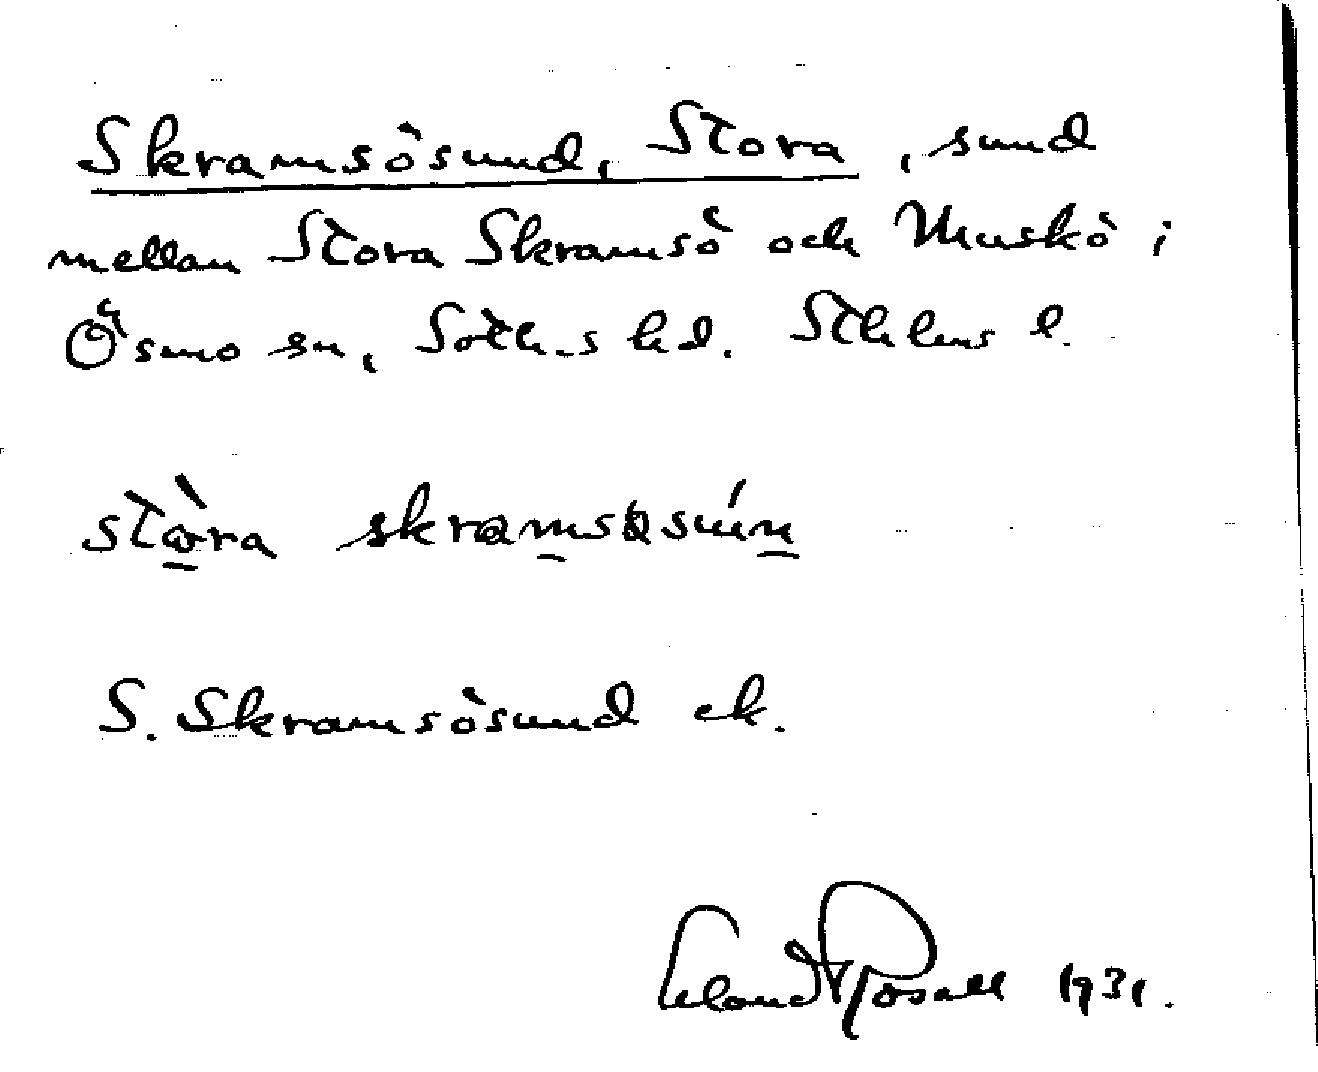 Skramsösund, Stora, sund
mellan Stora Skramsö och Muskö i
Ösmo sn, Soth.s hd. Sthlms l.
stòra skramsøsún
S. Skramsösund ek.
Erland Rosell 1931.